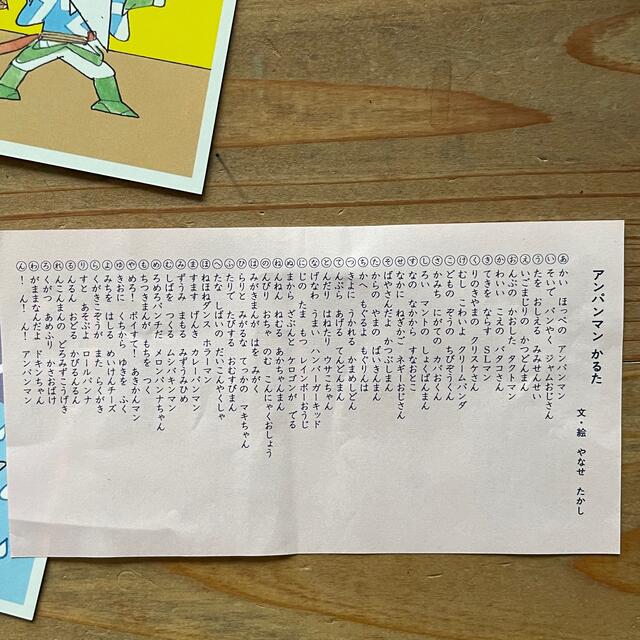 アンパンマン かるた
文・絵 やなせ たかし
あ かい ほっぺの アンパンマン
い そいで パンやく ジャムおじさん
う たを おしえる みみせんせい
え いごまじりの かつどんまん
お んぷの かおした タクトマン
か わいい こえの バタコさん
き てきを ならす SLマン
く りのきやまの クリスケさん
け むし こわいよ クリームパンダ
こ どもの ぞうの ちびぞうくん
さ かみち にがての カバおくん
し ろい マントの しょくぱんまん
す なの なかから すなおとこ
せ なかに ねぎかご ネギーおじさん
そ ばやさんだよ かつぶしまん
た からの やまの ばいきんまん
ち からもちだよ もぐりんは
つ きよに うかれる かまめしどん
て んぷら あげろ てんどんまん
と んだり はねたり ウサこちゃん
な げなわ うまい ハンバーガーキッド
に じの たま もつ レインボーおうじ
ぬ まから ざぶんと ケロゴンが でる
ね んねん ねむる あかちゃんまん
の んびり おちゃ のむ こんにゃくおしょう
は みがきまんが はを みがく
ひ らりと みがるな てっかの マキちゃん
ふ たりで たびする おむすびまん
へ たな しばいの だいこんやくしゃ
ほ ねほねダンス ホラーマン
ま すます げんき カレーパンマン
み ずうみ まもれ みずうみひめ
む しば つくる ムシバキンマン
め ろめろパンチだ メロンパンナちゃん
も ちつきまんが もちを つく
や めろ！ ポイすて！ あきかんマン
ゆ きおに くちから ゆきを ふく
よ みちを はしる めいけんチーズ
ら くがきこぞうが らくがき
り すと あそぶよ ロールパンナ
る んるん おどる かびるんるん
れ んこんまんの どろみずこうげき
ろ くがつ あめふり かさおばけ
わ がままなんだよ ドキンちゃん
ん ！ん！ん！ アンパンマン